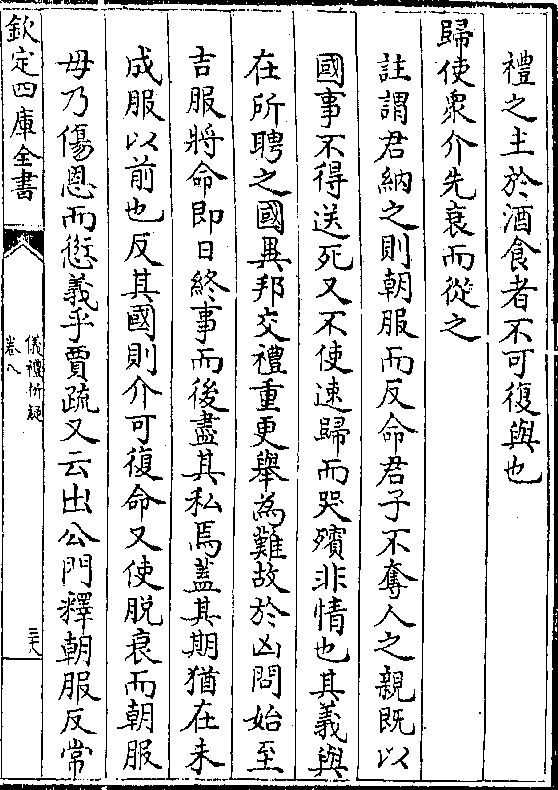 禮之主於酒食者不可復與也
歸使衆介先衰而從之
註謂君納之則朝服而反命君子不奪人之親既以
國事不得送死又不使速歸而哭殯非情也其義與
在所聘之國異邦交禮重更舉為難故於凶問始至
吉服將命即日終事而後盡其私焉蓋其期猶在未
成服以前也反其國則介可復命又使脱衰而朝服
毋乃傷恩而愆義乎賈疏又云出公門釋朝服反常
欽定四庫全書
儀禮析疑
卷八
三六